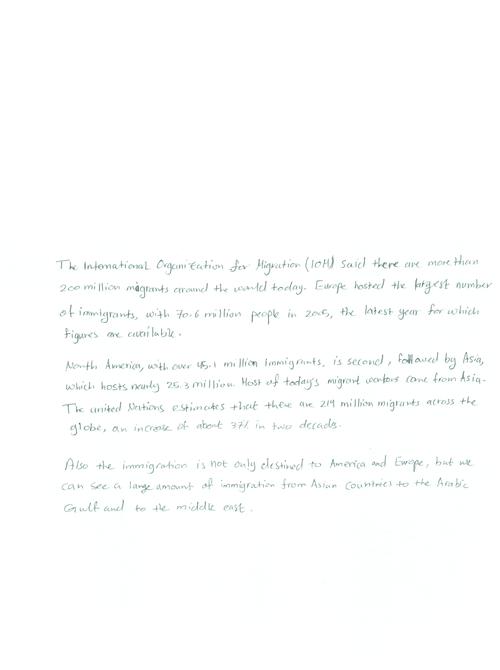 The International Organization for Migration (IOM) said there are more than
200 million migrants around the world today. Europe hosted the largest number
of immigrants, with 70.6 million people in 2005, the latest year for which
figures are available.
North America, with over 45.1 million immigrants, is second, followed by Asia,
which hosts nearly 25.3 million. Most of today's migrant workers come from Asia.
The united Nations estimates that there are 214 million migrants across the
globe, an increase of about 37% in two decades.
Also the immigration is not only destined to America and Europe, but we
can see a large amount of immigration from Asian Countries to the Arabic
Gulf and to the middle east.